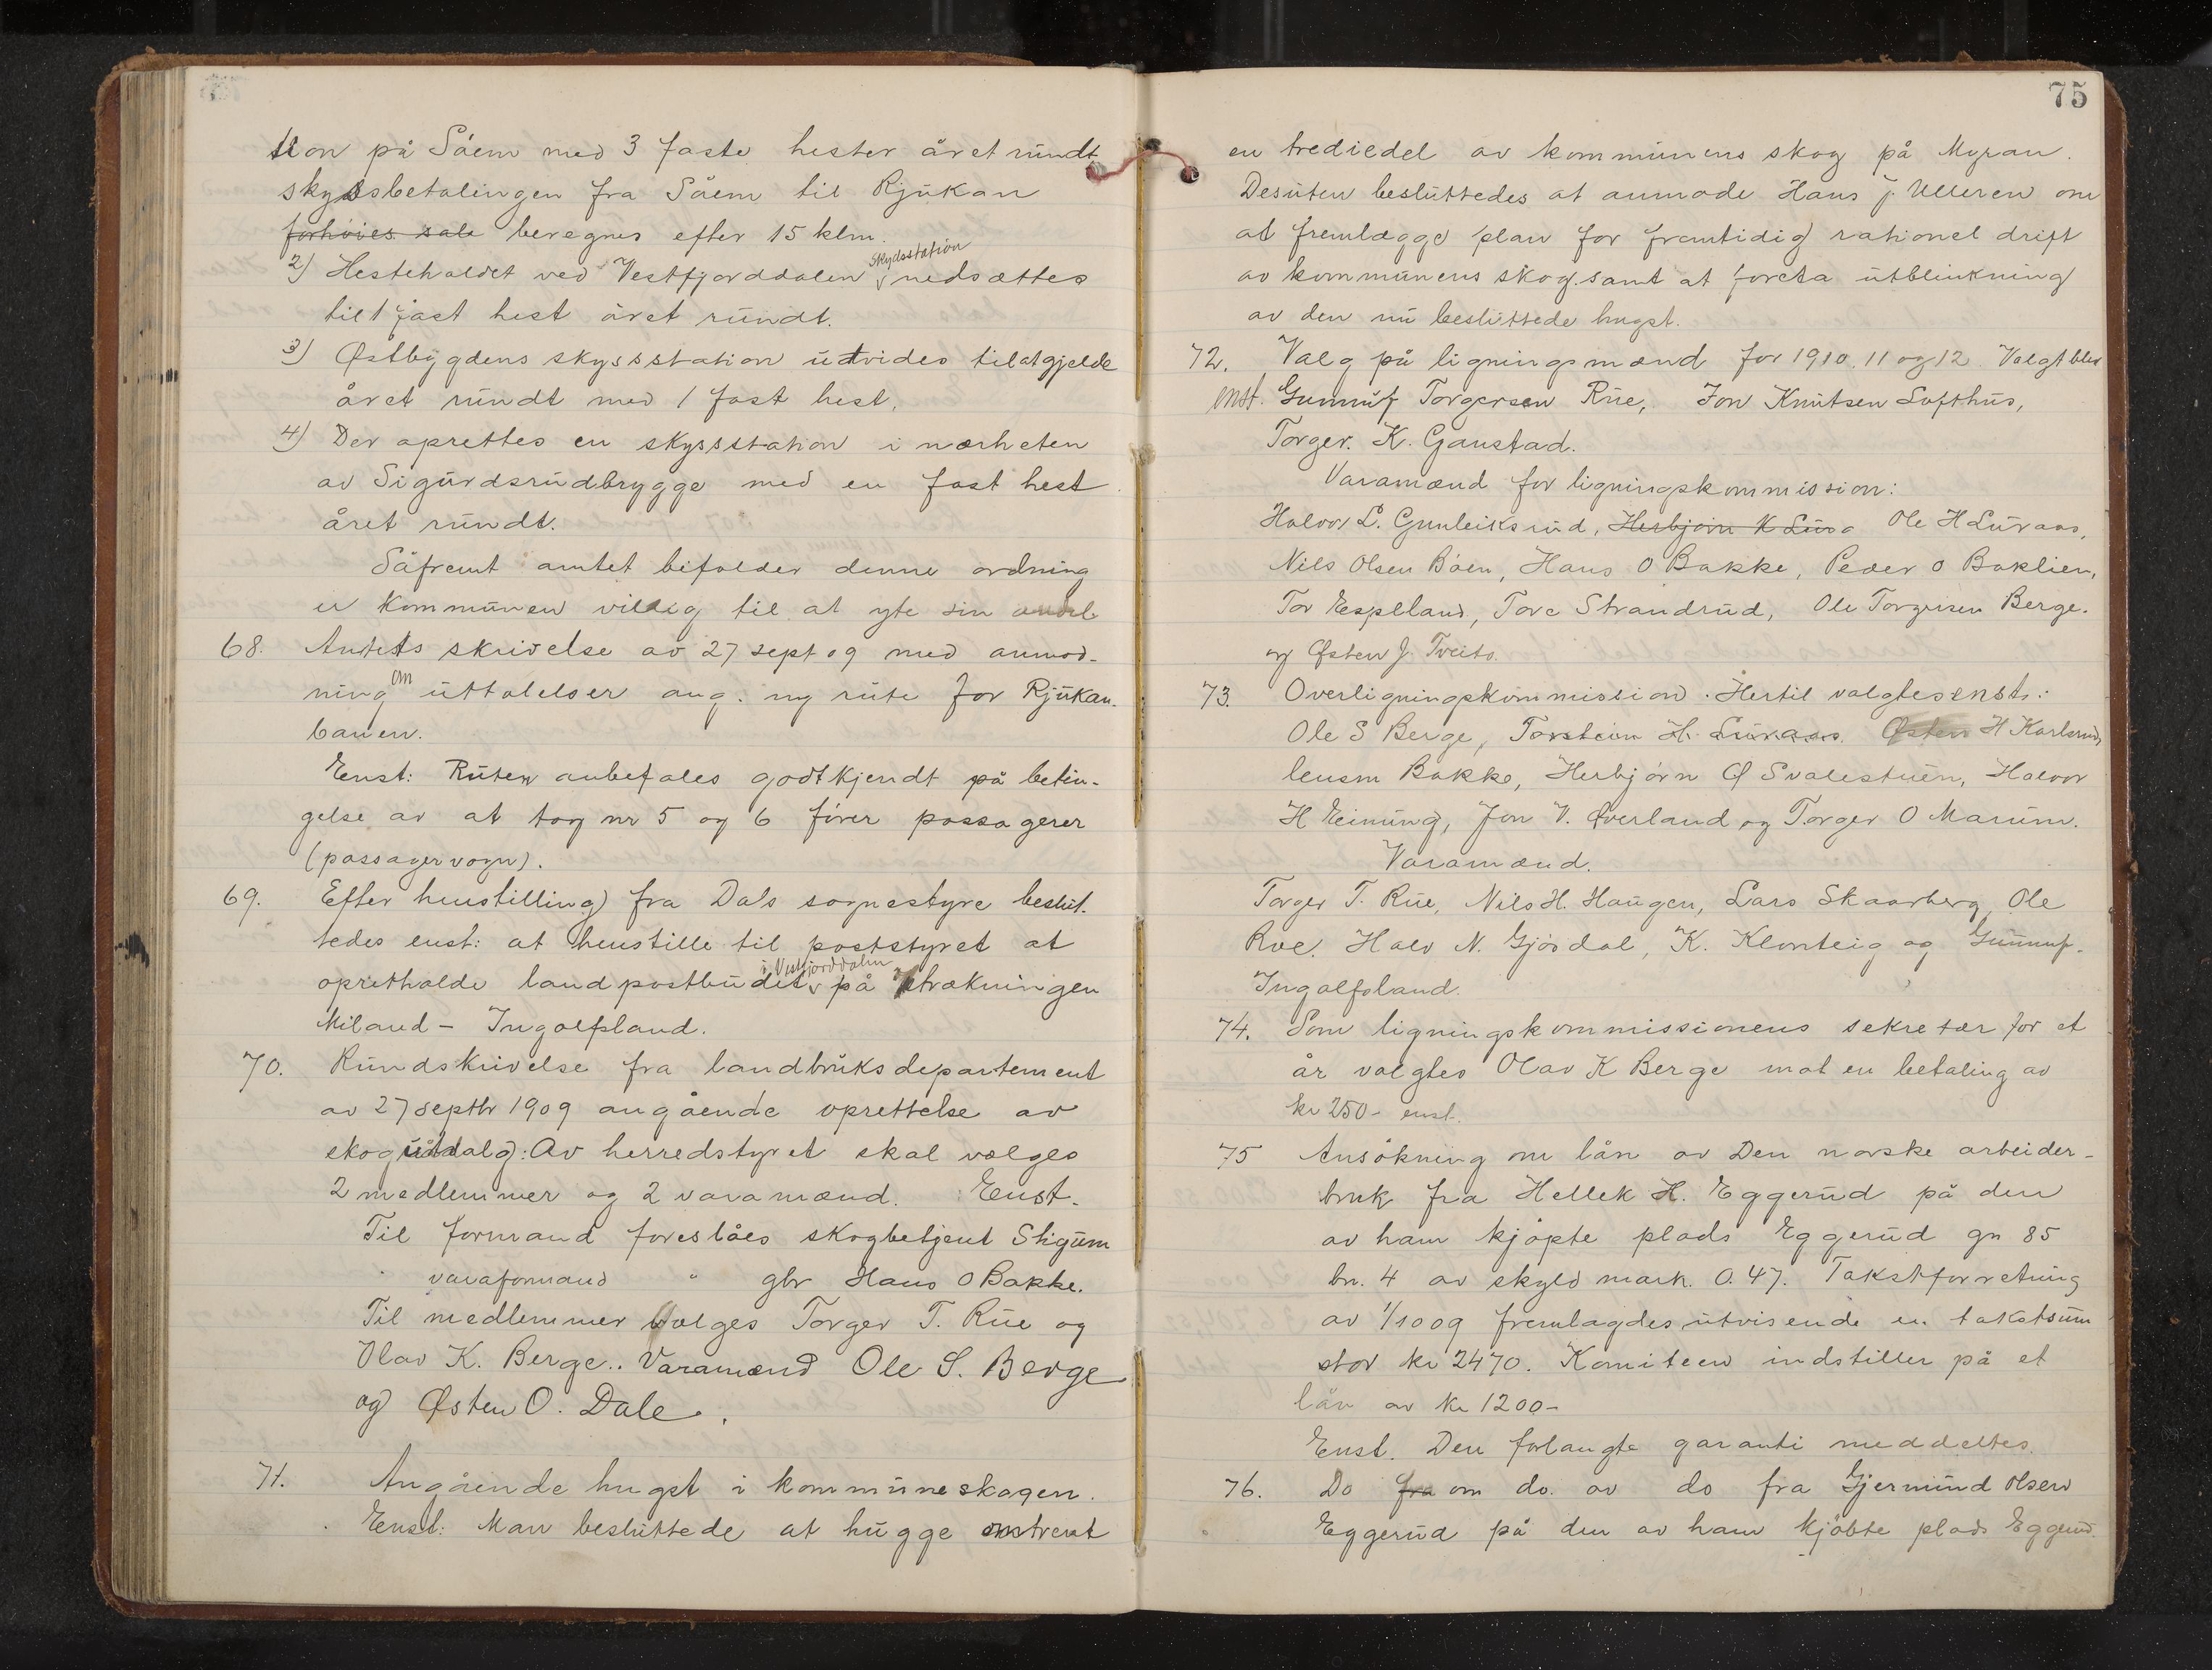 tion på Såem med 3 faste hester året rundt
skydsbetalingen fra Såem til Rjukan
forhöies sale beregnes efter 15 klm.
skydsstation
2) Hesteholdet ved Vestfjorddalen nedsættes
til 1 fast hest året rundt.
3) Østbygdens skydsstation utvides til at gjelde
året rundt med 1 fast hest.
4) Der oprettes en skydsstation i nærheten
av Sigurdsrudbrygge med en fast hest
året rundt.
Såfremt amtet bifalder denne ordning
er kommunen villig til at yte sin andel
68. Amtets skrivelse av 27 sept 09 med anmod-
ning om uttalelser ang. ny rute for Rjukan-
banen.
Enst: Ruten anbefales godtkjendt på betin-
gelse av at tog nr 5 og 6 förer passagerer
(passagervogn).
69. Efter henstilling fra Dals sognestyre beslut-
tedes enst: at henstille til poststyret at
i Vestfjorddalen
opretholde landpostbudet på strækningen
Miland - Ingolfsland.
70. Rundskrivelse fra landbruksdepartement
av 27 septbr 1909 angående oprettelse av
skogutvalg: Av herredstyret skal vælges
2 medlemmer og 2 varamænd. Enst.
Til formand foreslåes skogbetjent Stigum
varaformand " gbr Hans O Bakke.
Til medlemmer vælges Torger T. Rue og
Olav K. Berge. Varamænd Ole S. Berge
og Østen O. Dale.
71. Angående hugst i kommuneskogen.
Enst: Man besluttede at hugge omtrent
75
en trediedel av kommunens skog på Myran.
Desuten besluttedes at anmode Hans J. Ulleren om
at fremlægge plan for fremtidig rationel drift
av kommunens skog samt at foreta utblinkning
av den nu besluttede hugst.
72. Valg på ligningsmænd for 1910. 11 og 12 Valgt blev
enst. Gunnuf Torgersen Rue, Jon Knutsen Lofthus,
Torger K. Gaustad.
Varamænd for ligningskommission:
Halvor L. Gunleiksrud, Herbjörn K Ole H Luraas,
Nils Olsen Böen, Hans O Bakke, Peder O Baklien,
Tor Espeland, Tore Strandrud, Ole Torgersen Berge.
og Østen J. Tveito.
73. Overligningskommission. Hertil valgtes enst.:
Ole S Berge, Torstein H. Luraas. Østen H Karlsrud,
lensm Bakke, Herbjörn Ø Svalestuen, Halvor
H Einung, Jon V. Øverland og Torger O Marum.
Varamænd.
Torger T. Rue, Nils H. Haugen, Lars Skaarberg, Ole
Roe, Halv N. Gjösdal, K. Klonteig og Gunnuf
Ingolfsland.
74. Som ligningskommissionens sekretær for et
år valgtes Olav K Berge mot en betaling av
kr 250- enst.
75 Ansökning om lån av Den norske arbeider-
bruk fra Hellek H. Eggerud på den
av ham kjöpte plads Eggerud gn 85
bn. 4 av skyld mark. 0.47. Takstforretning
av 1/10 09 fremlagdes utvisende en takstsum
stor kr 2470. Komiteen indstiller på et
lån av kr 1200-
Enst. Den forlangte garanti meddeltes.
76. Do fra om do. av do fra Gjermund Olsen
Eggerud på den av ham kjöbte plads Eggerud.